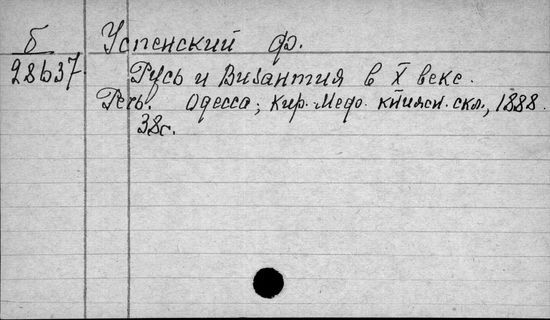 б Успенский Ф.
28637. Русь и Византия в X веке.
Речь. Одесса; Кир. Мефо. книжн. скл., 1888.
38с.